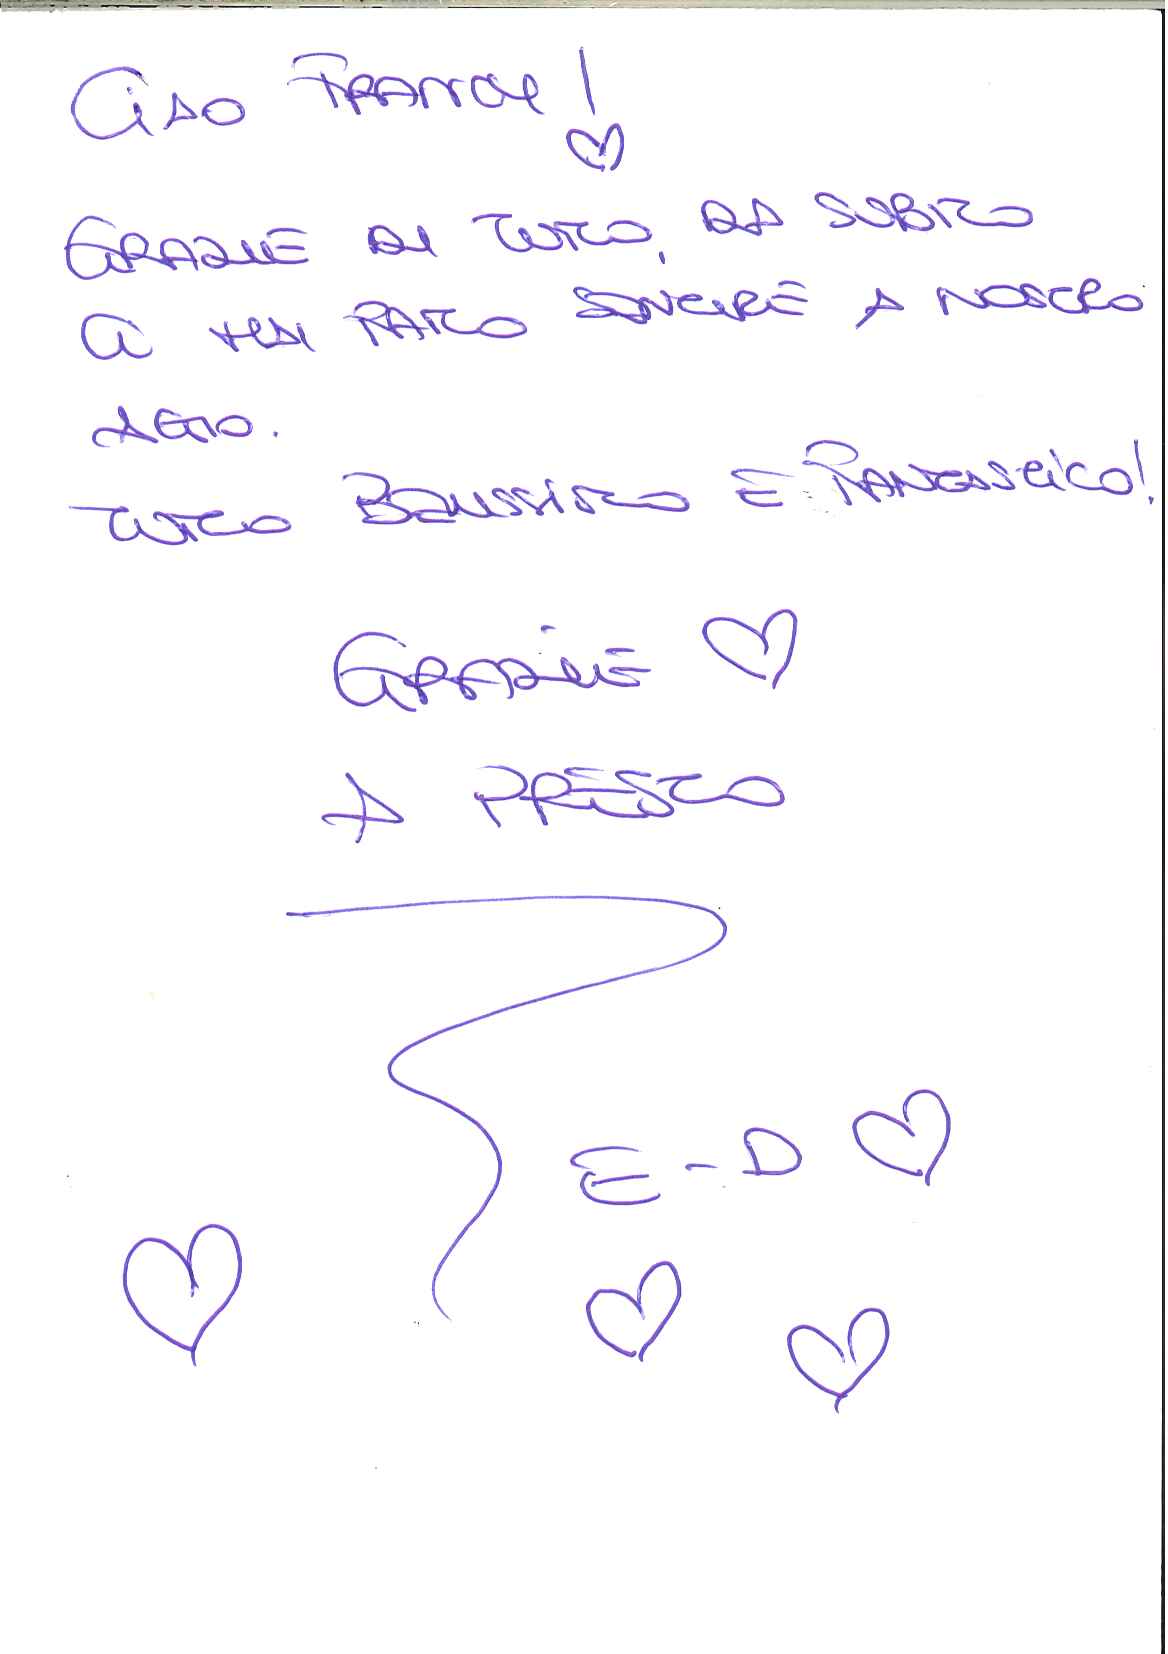 CIAO FRANCY!
GRAZIE DI TUTTO, DA SUBITO
CI HAI FATTO SENTIRE A NOSTRO
AGIO.
TUTTO BELLISSIMO E FANTASTICO!
GRAZIE
A PRESTO
E-D